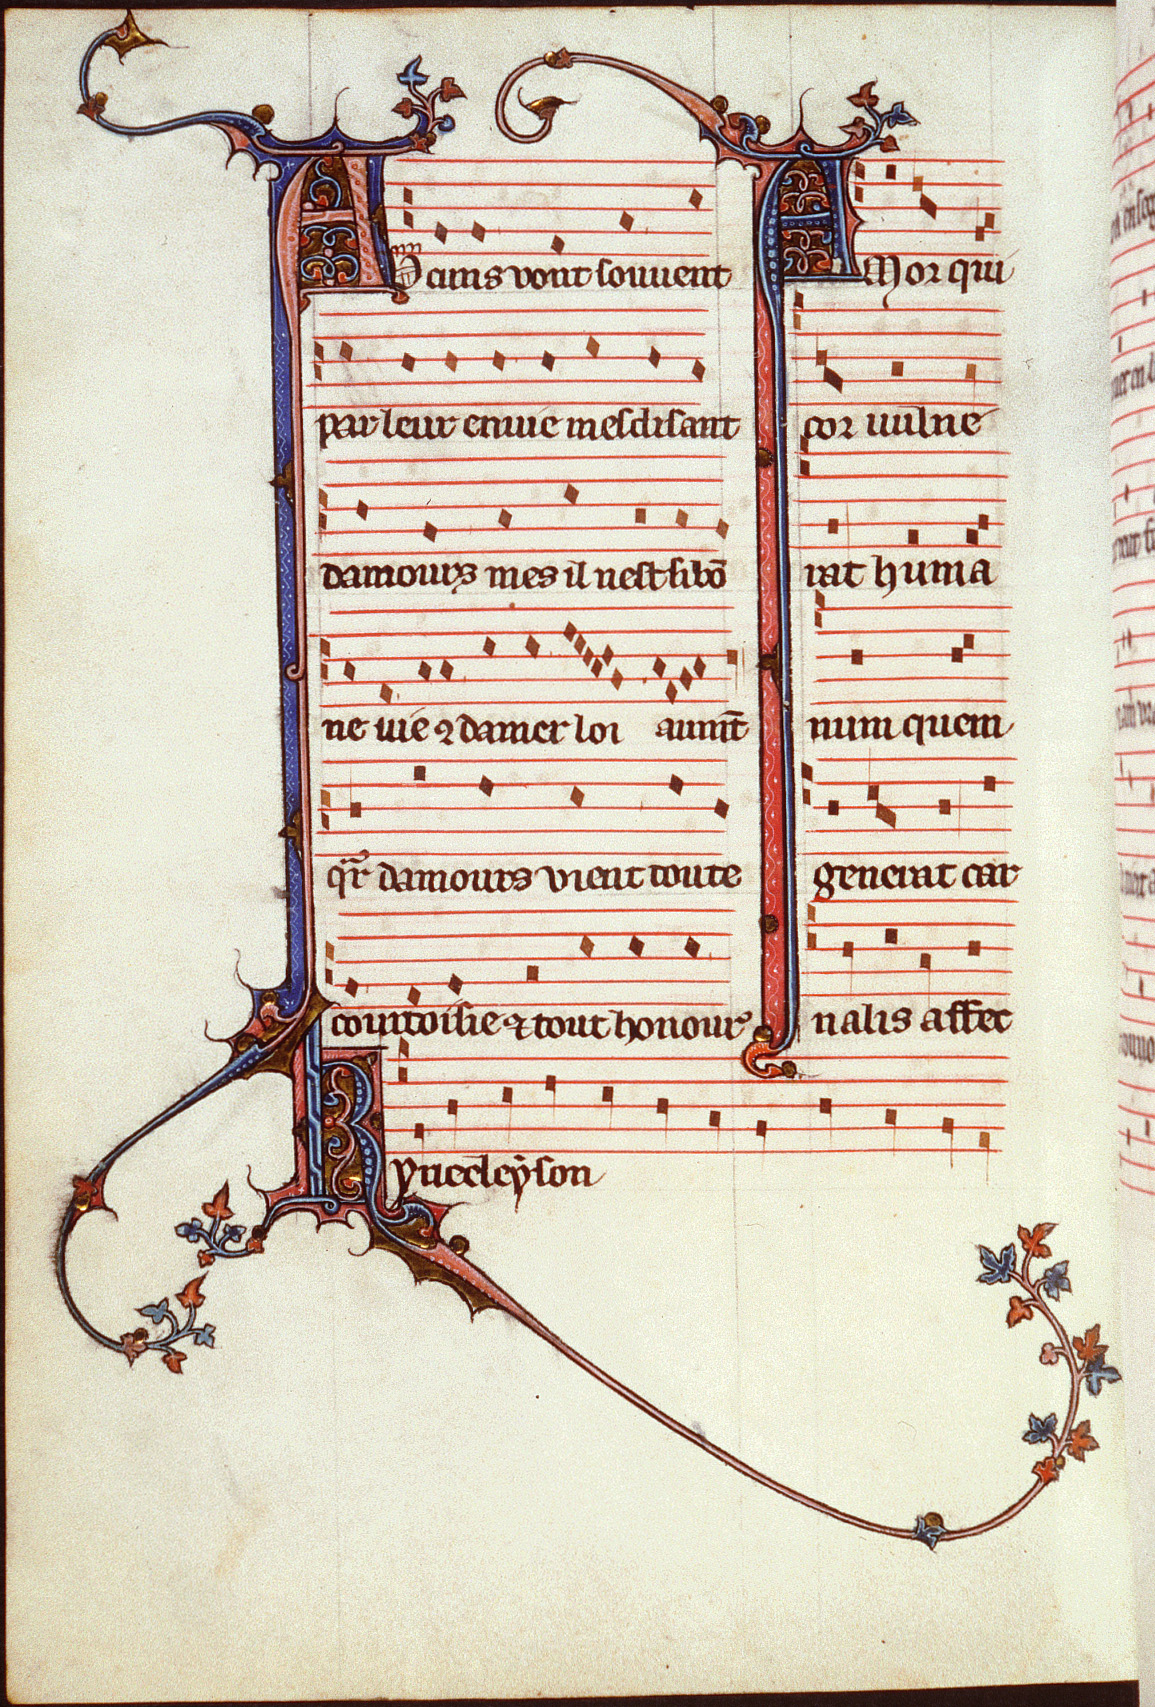 AUcuns vont souuent
par leur enuie mesdisant
damours mes il nest si bō
ne uie ⁊ damer loi aumt̄
qr̄ damours vient toute
courtoisie ⁊ tout honour
AMor qui
cor uulne
rat huma
num quem
generat car
nalis affec
Kyrieeleyson